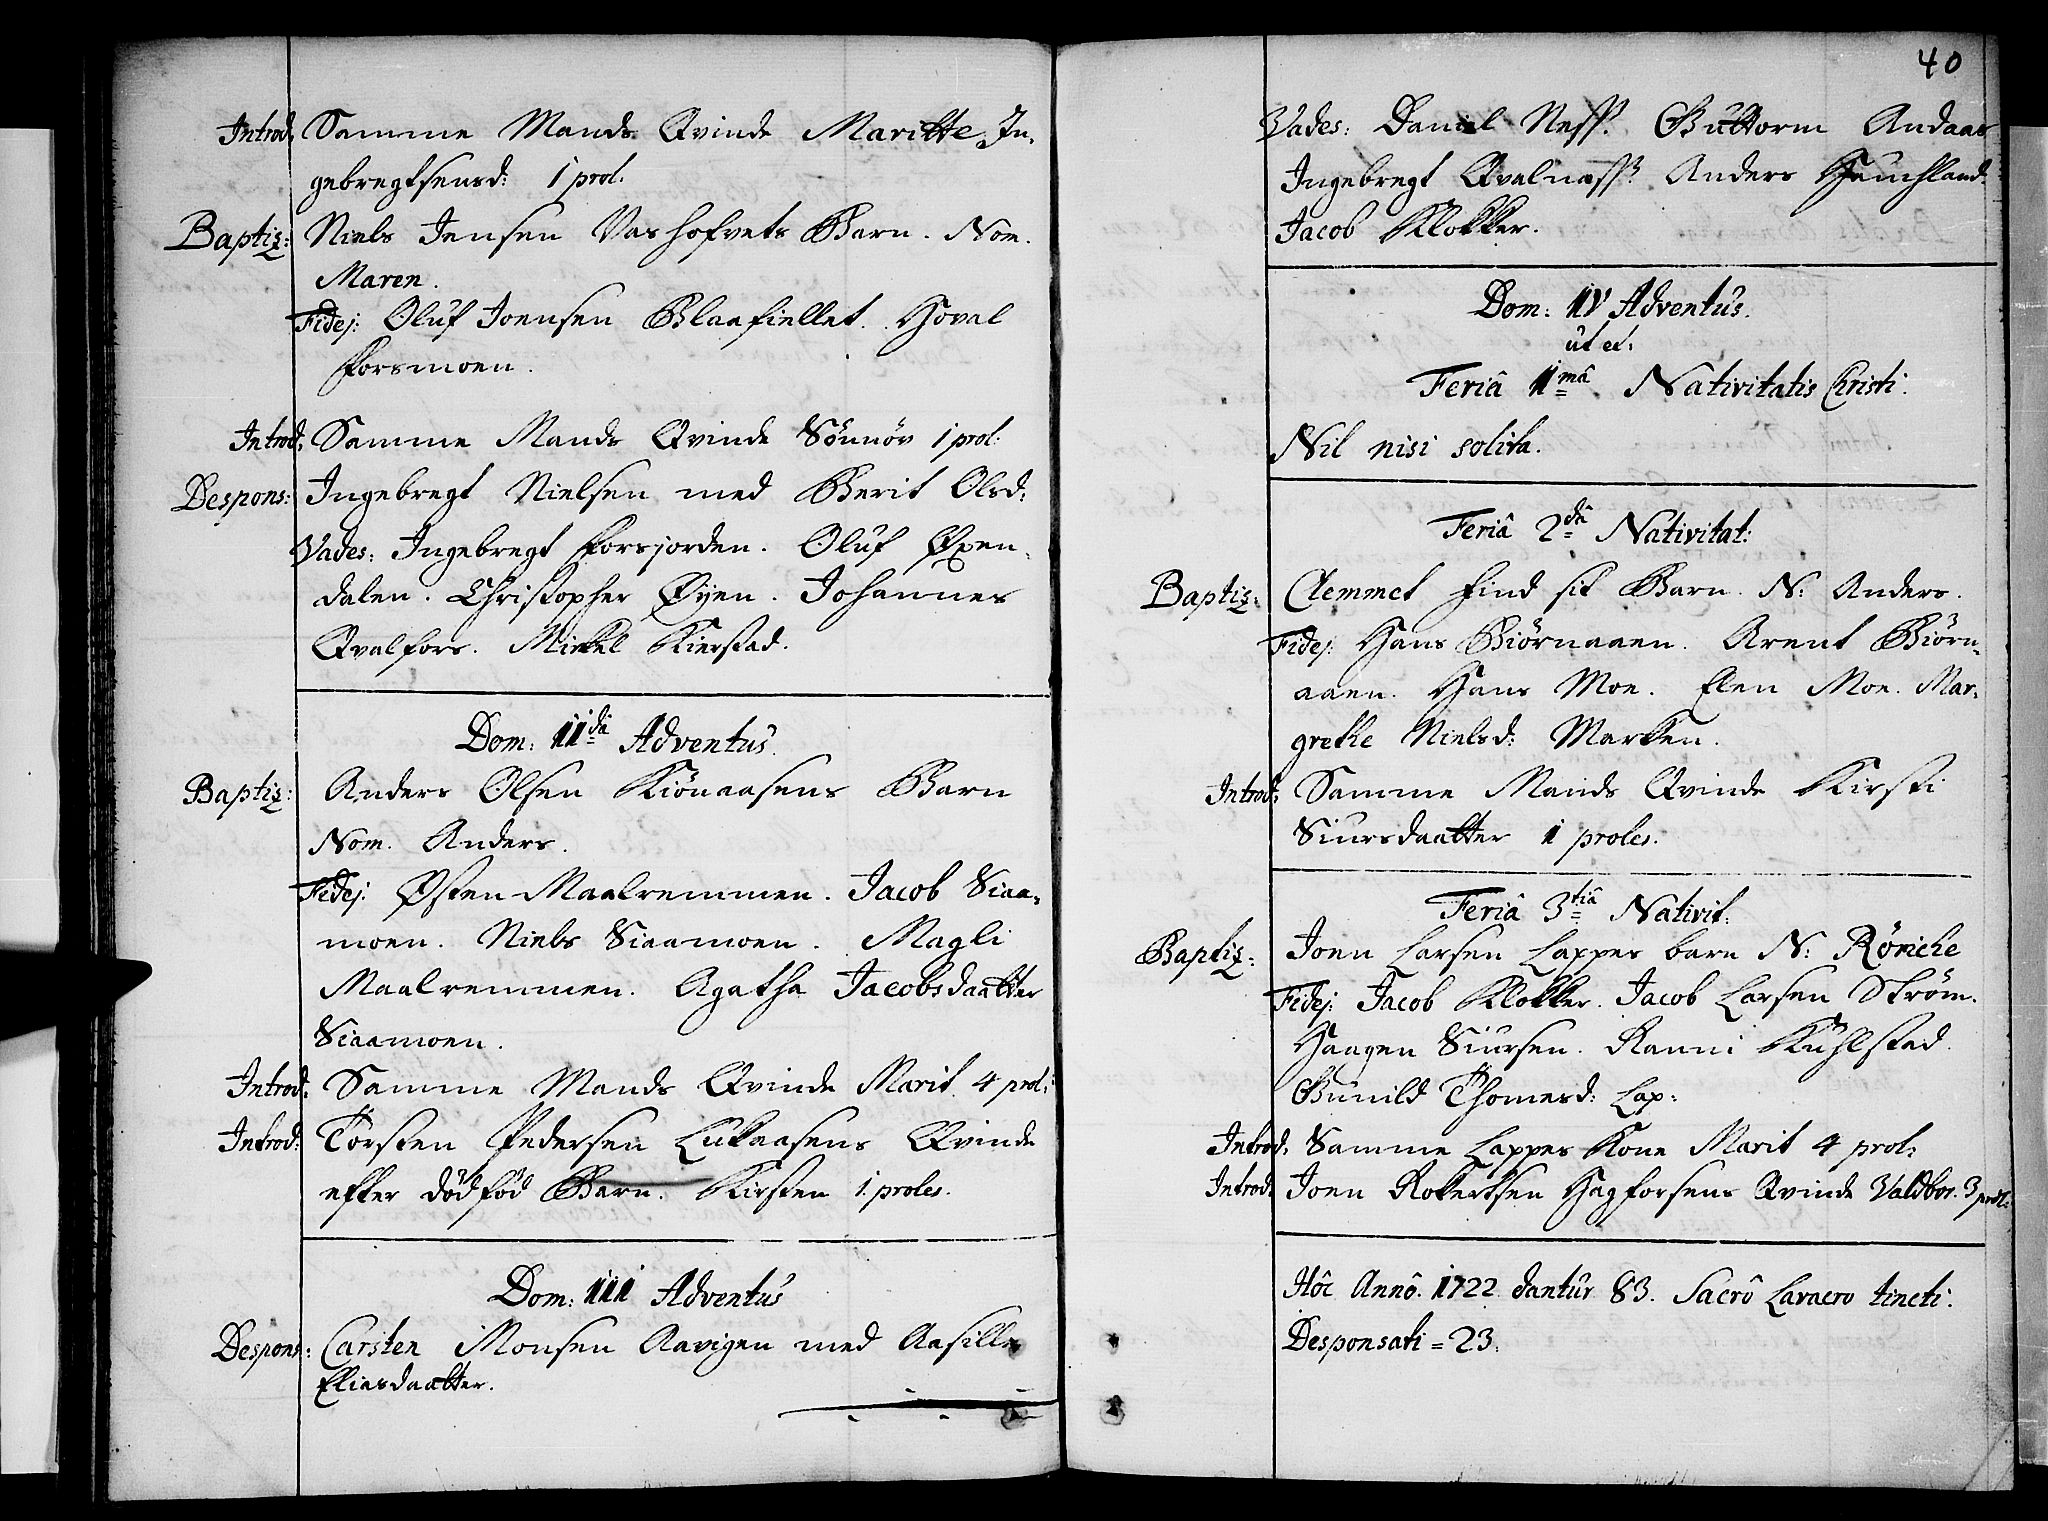 Introd: Samme Mands Qvinde Maritte In-
gebregtsensd: 1 prol.
Baptiz: Niels Jensen Vashofvets Barn. Nom.
Maren.
Fidej: Oluf Joensen Blaafiellet. Hoval
Forsmoen.
Introd: Samme Mands Qvinde Sönnöv 1 prol:
Despons: Ingebregt Nielsen med Berit Olsd:
Vades: Ingebregt Forsjorden. Oluf Øxen-
dalen. Christopher Øyen. Johannes
Qvalfors. Mickel Kierstad.
Dom: II da Adventus.
Baptiz: Anders Olsen Kiönaasens Barn
Nom. Anders.
Fidej: Østen Maalremmen. Jacob Siaa-
moen. Niels Siaamoen. Magli
Maalremmen. Agatha Jacobsdaatter
Siaamoen.
Introd: Samme Mands Qvinde Marit 4 prol:
Introd: Torsten Pedersen Lukaasens Qvinde
efter dödföd Barn. Kirsten 1. proles.
Dom: III Adventus
Despons: Carsten Monsen Aavigen med Aasille
Eliesdaatter.
40
Vades: Daniel Ness. Guttorm Andaas
Ingebregt Qvalness. Anders Hauchland.
Jacob Klokker.
Dom: IV Adventus.
ut et:
Feriâ 1 mâ Nativitatis Christi.
Nil nisi solita.
Feriâ 2 dâ Nativitat:
Baptiz: Clemmet Find sit Barn. N: Anders.
Fidej: Hans Biörnaaen. Arent Biörn-
aaen. Hans Moe. Elen Moe. Mar-
grethe Nielsd: Marken.
Introd: Samme Mands Qvinde Kirsti
Siursdaatter 1 proles.
Feriâ 3 tiâ Nativit:
Baptiz: Joen Larsen Lappes barn N: Röniche
Fidej: Jacob Klokker. Jacob Larsen Ström.
Haagen Siursen. Ranni Kuhlstad.
Gunild Thomesd: Lap:
Introd: Samme Lappes Kone Marit 4 prol:
Introd: Joen Robertsen Hagforsens Qvinde Valdbor. 3 prol:
Hôc Annô. 1722 dantur 83. Sacrô Lavacro tincti.
Desponsati = 23.